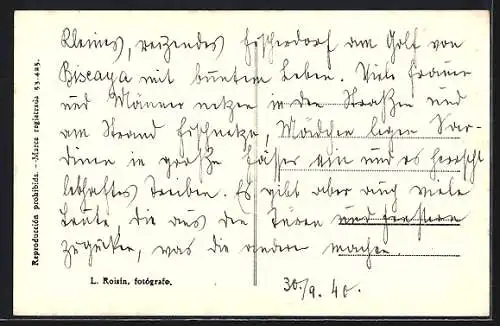 Kleines, reizendes Fischerdorf am Golf von
Biscaya mit buntem Leben. Viele Frauen
und Männer netzen in den Straßen und
am Strand Fischnetze, Mädchen legen Sar-
dinen in grosse Fässer ein und es herrscht
lebhaftes Treiben. Es gibt aber auch viele
Leute, die aus den Türen und Fenstern
zugucken, was die andern machen.
30./9. 40.
L. Roisin, fotógrafo.
Reproducción prohibida. - Marca registrada 53.425.